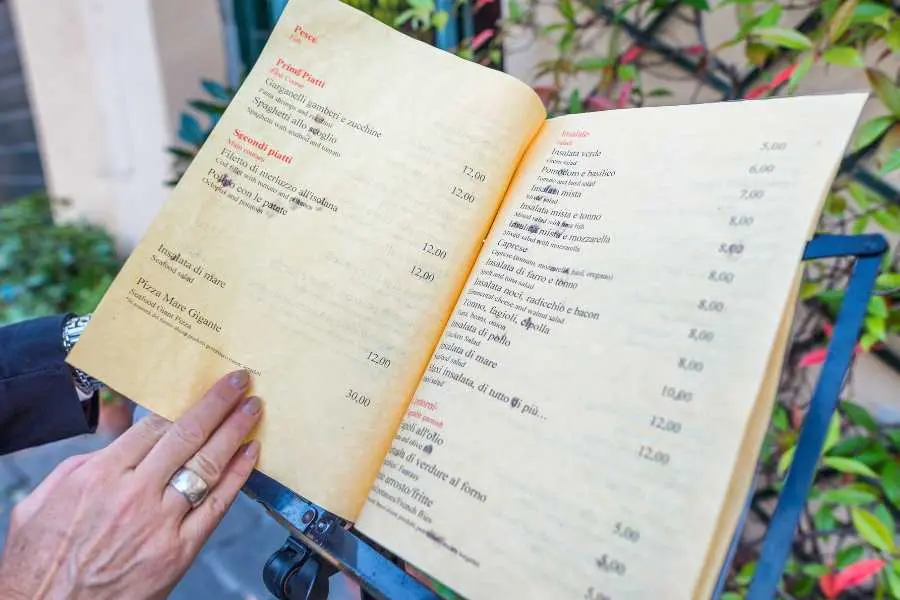 Pesce
Fish
Primi Piatti
First Course
Garganelli gamberi e zucchine
Pasta shrimps and zucchini
12,00
Spaghetti allo scoglio
Spaghetti with seafood and tomato
12,00
Secondi piatti
Main courses
Filetto di merluzzo all'isolana
Cod filet with tomato and potatoes
12,00
Polipo con le patate
Octopus and potatoes
12,00
Insalata di mare
Seafood salad
12,00
Pizza Mare Gigante
Seafood Giant Pizza
30,00
Insalate
salads
Insalata verde
Green salad
5,00
Pomodoro e basilico
Tomato and basil salad
6,00
Insalata mista
Mixed salad
7,00
Insalata mista e tonno
Mixed salad with tuna fish
8,00
Insalata mista e mozzarella
Mixed salad with mozzarella
8,00
Caprese
Caprese (tomato, mozzarella, basil, oregano)
8,00
Insalata di farro e tonno
Spelt and tuna salad
8,00
Insalata noci, radicchio e bacon
Emmental cheese and walnut salad
8,00
Tonno, fagioli, cipolla
Tuna, beans, onion
8,00
Insalata di pollo
Chicken Salad
10,00
Insalata di mare
salad
12,00
Maxi insalata, di tutto di più...
salad
12,00
all'olio
olive oil
5,00
di verdure al forno
Fantasy
8,00
arrosto/fritte
potatoes/French fries
5,00